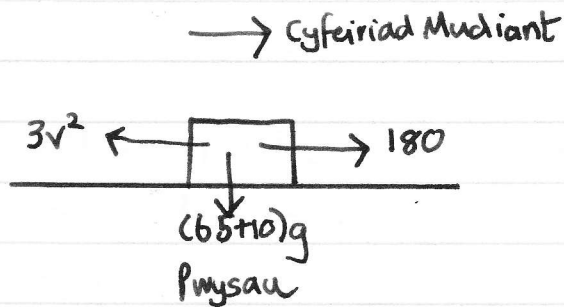 → Cyfeiriad Mudiant
3v² 180
(65+10)g
Pwysau